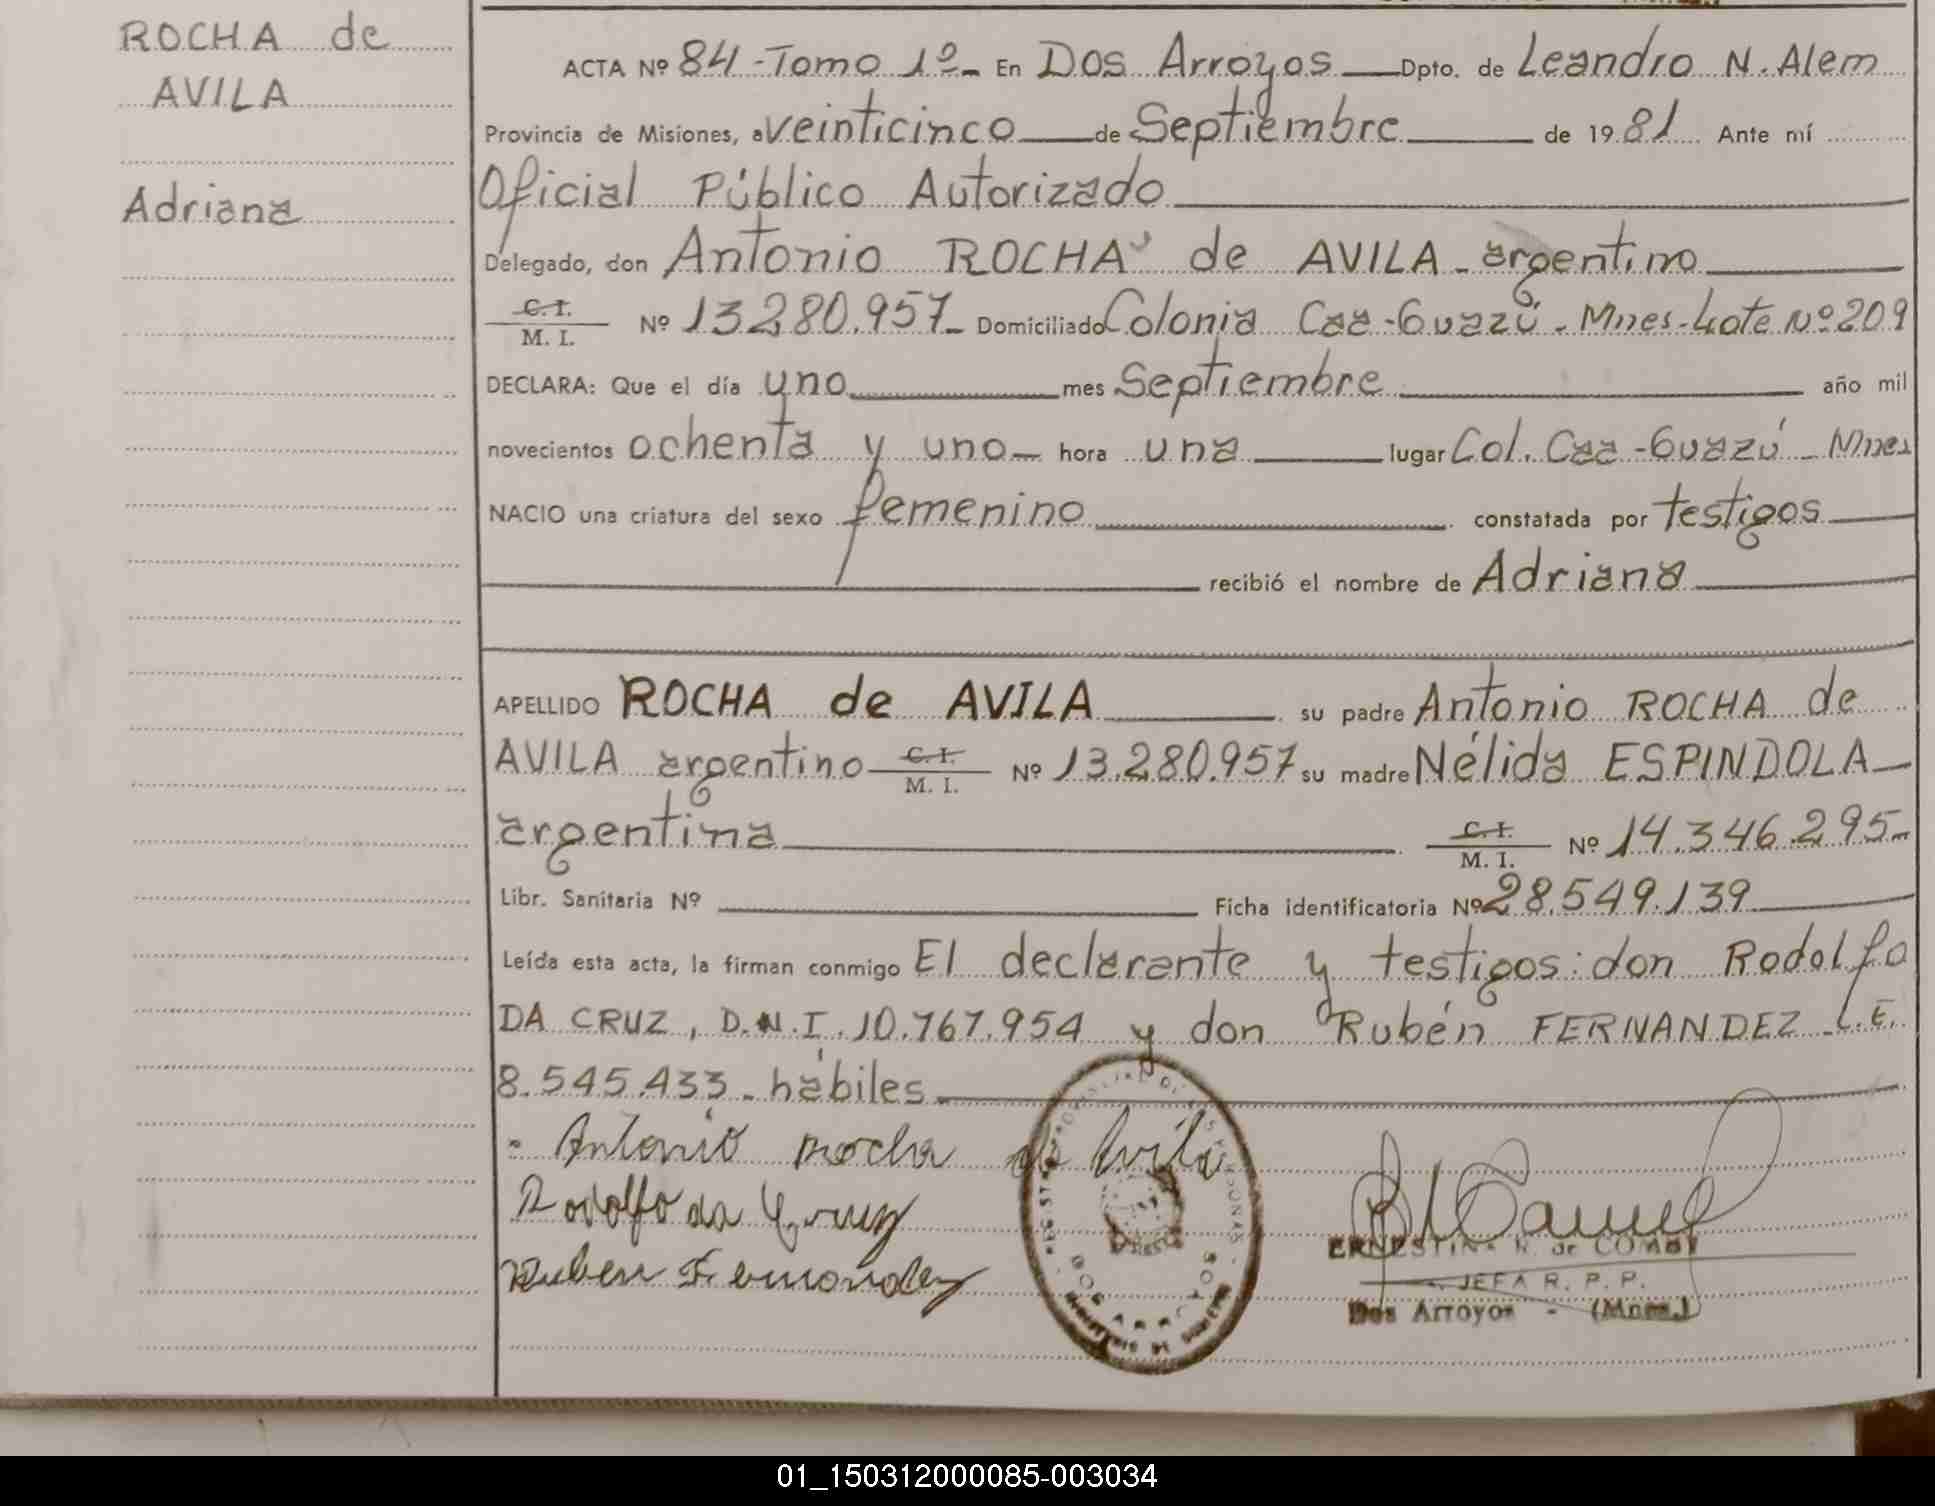 ROCHA de
AVILA
Adriana
ACTA Nº 84 - Tomo 1º - En Dos Arroyos Dpto. de Leandro N. Alem
Provincia de Misiones, a veinticinco de Septiembre de 1981 Ante mí
Oficial Público Autorizado
Delegado, don Antonio ROCHA de AVILA - argentino
C. I.
M. I. Nº 13.280.957 - Domiciliado Colonia Caa-Guazú - Mnes - Lote Nº 209
DECLARA: Que el día uno mes Septiembre año mil
novecientos ochenta y uno hora una lugar Col. Caa-Guazú - Mnes
NACIO una criatura del sexo femenino constatada por testigos
recibió el nombre de Adriana
APELLIDO ROCHA de AVILA su padre Antonio ROCHA de
AVILA argentino C. I. M. I. Nº 13.280.957 su madre Nélida ESPINDOLA
argentina C. I. M. I. Nº 14.346.295
Libr. Sanitaria Nº Ficha identificatoria Nº 28.549.139
Leída esta acta, la firman conmigo El declarante y testigos: don Rodolfo
DA CRUZ, D.N.I. 10.767.954 y don Rubén FERNANDEZ L.E.
8.545.433 - hábiles
Antonio Rocha de Avila
Rodolfo da Cruz
Ruben Fernandez
DOS ARROYOS
ERNESTINA R. de
JEFA R. P. P.
Dos Arroyos - (Mnes.)
01_150312000085-003034